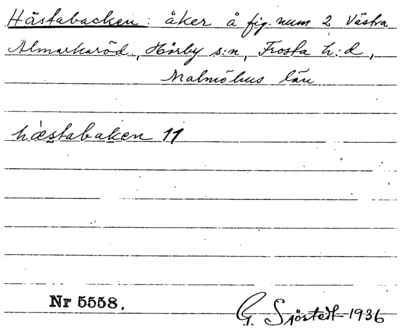 Hästabacken: åker å fig. num 2 Västra
Almarkaröd, Hörby s:n, Frosta h:d,
Malmöhus län
hæstabaken 11
Nr 5558.
G. Sjöstedt 1936